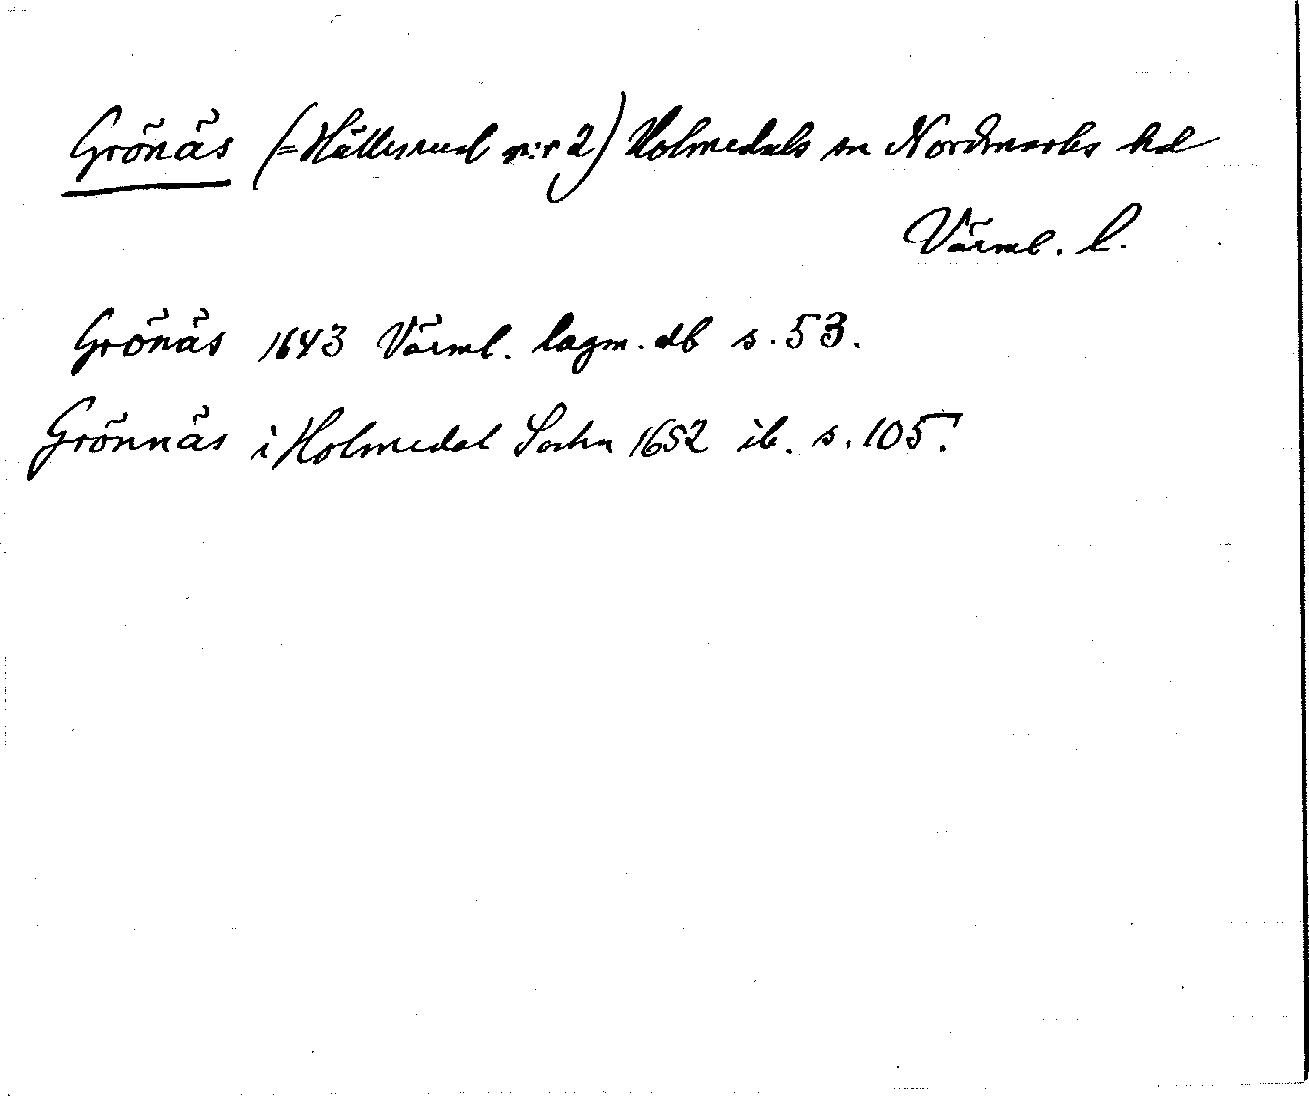 Grönäs (=Hällesrud n:r 2) Holmedals sn Nordmarks hd
Värml. l.
Grönäs 1643 Värml. lagm. db s. 53.
Grönnäs i Holmedal Sochn 1652 ib. s. 105.